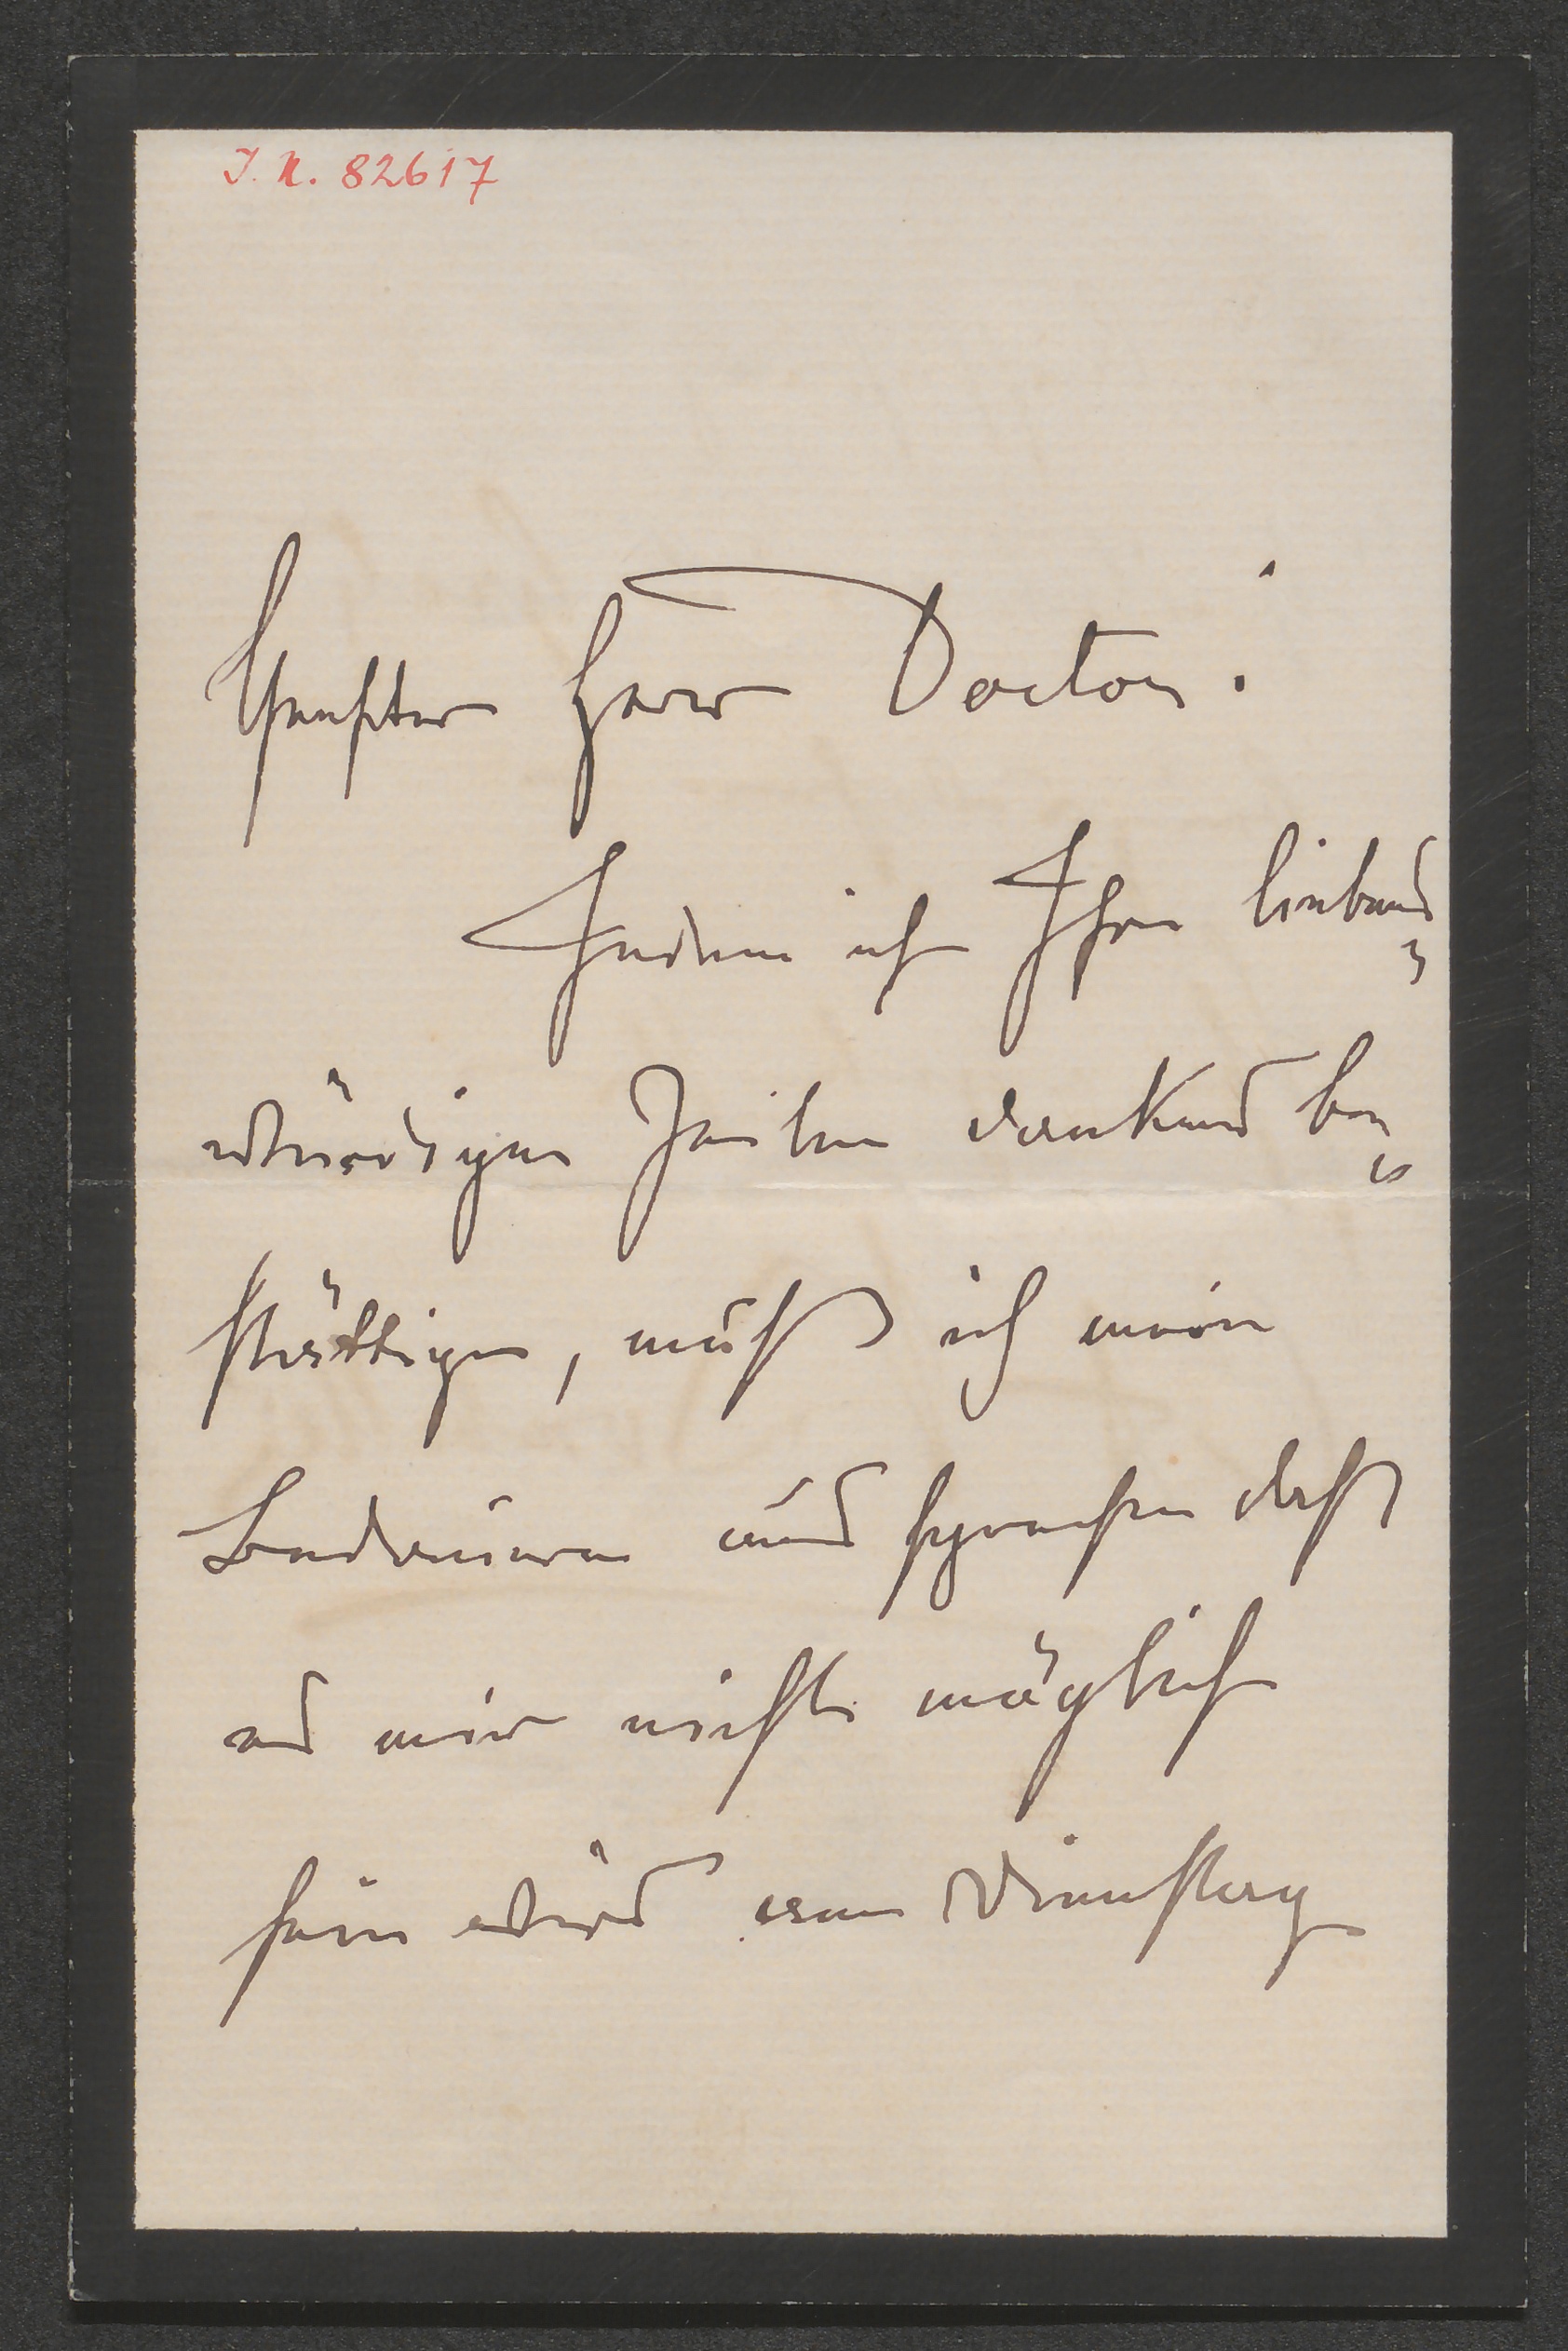 I. N. 82617
Geehrter Herr Doctor!
Indem ich Ihre liebens-
würdigen Zeilen dankend be-
stättige, muß ich mein
Bedauern aussprechen daß
es mir nicht möglich
sein wird am Dienstag